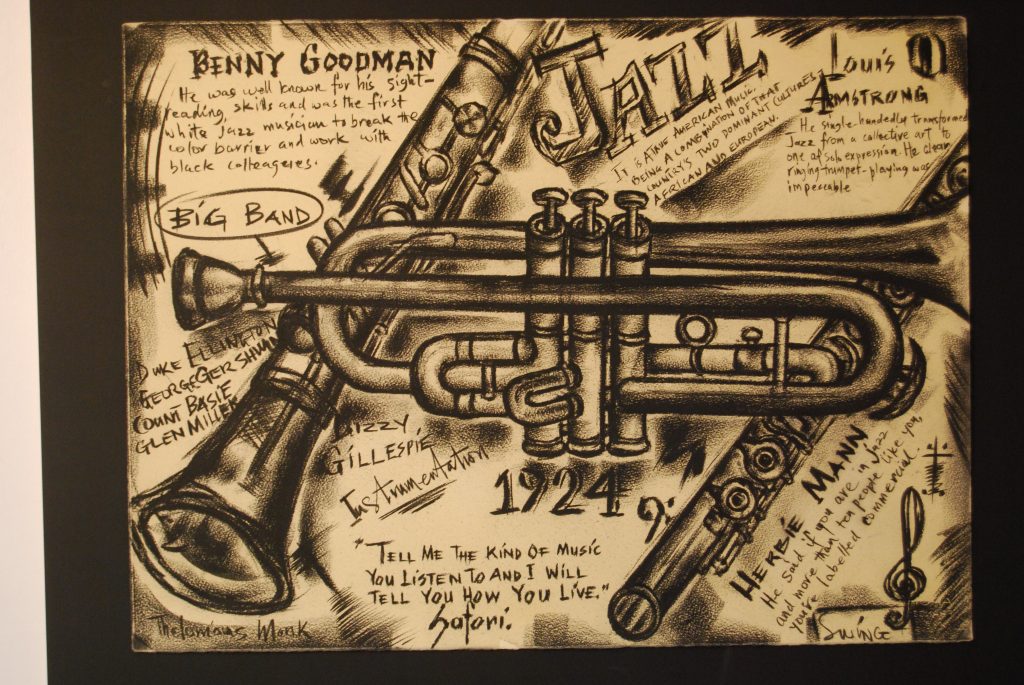 BENNY GOODMAN
He was well known for his sight-
reading, skills and was the first
white Jazz musician to break the
color barrier and work with
black colleageres.
BIG BAND
DUKE ELLINGTON
GEORGE GERSHWAN
COUNT BASIE
GLEN MILLER
JAZZ
IS A TRUE AMERICAN MUSIC,
BEING A COMBINATION OF THAT
COUNTRY'S TWO DOMINANT CULTURES,
AFRICAN AND EUROPEAN.
Louis
AMSTRONG
He single-handedly transformed
Jazz from a collective art to
one of solo expression. He clear,
ringing trumpet-playing was
impecable
DIZZY
GILLESPIE
Instrumentation
1924
"TELL ME THE KIND OF MUSIC
YOU LISTEN TO AND I WILL
TELL YOU HOW YOU LIVE."
Satori.
HERBIE MANN
He said if you are in Jazz
and more than ten people like you,
you're labelled commercial.
SWING
Thelonious Monk